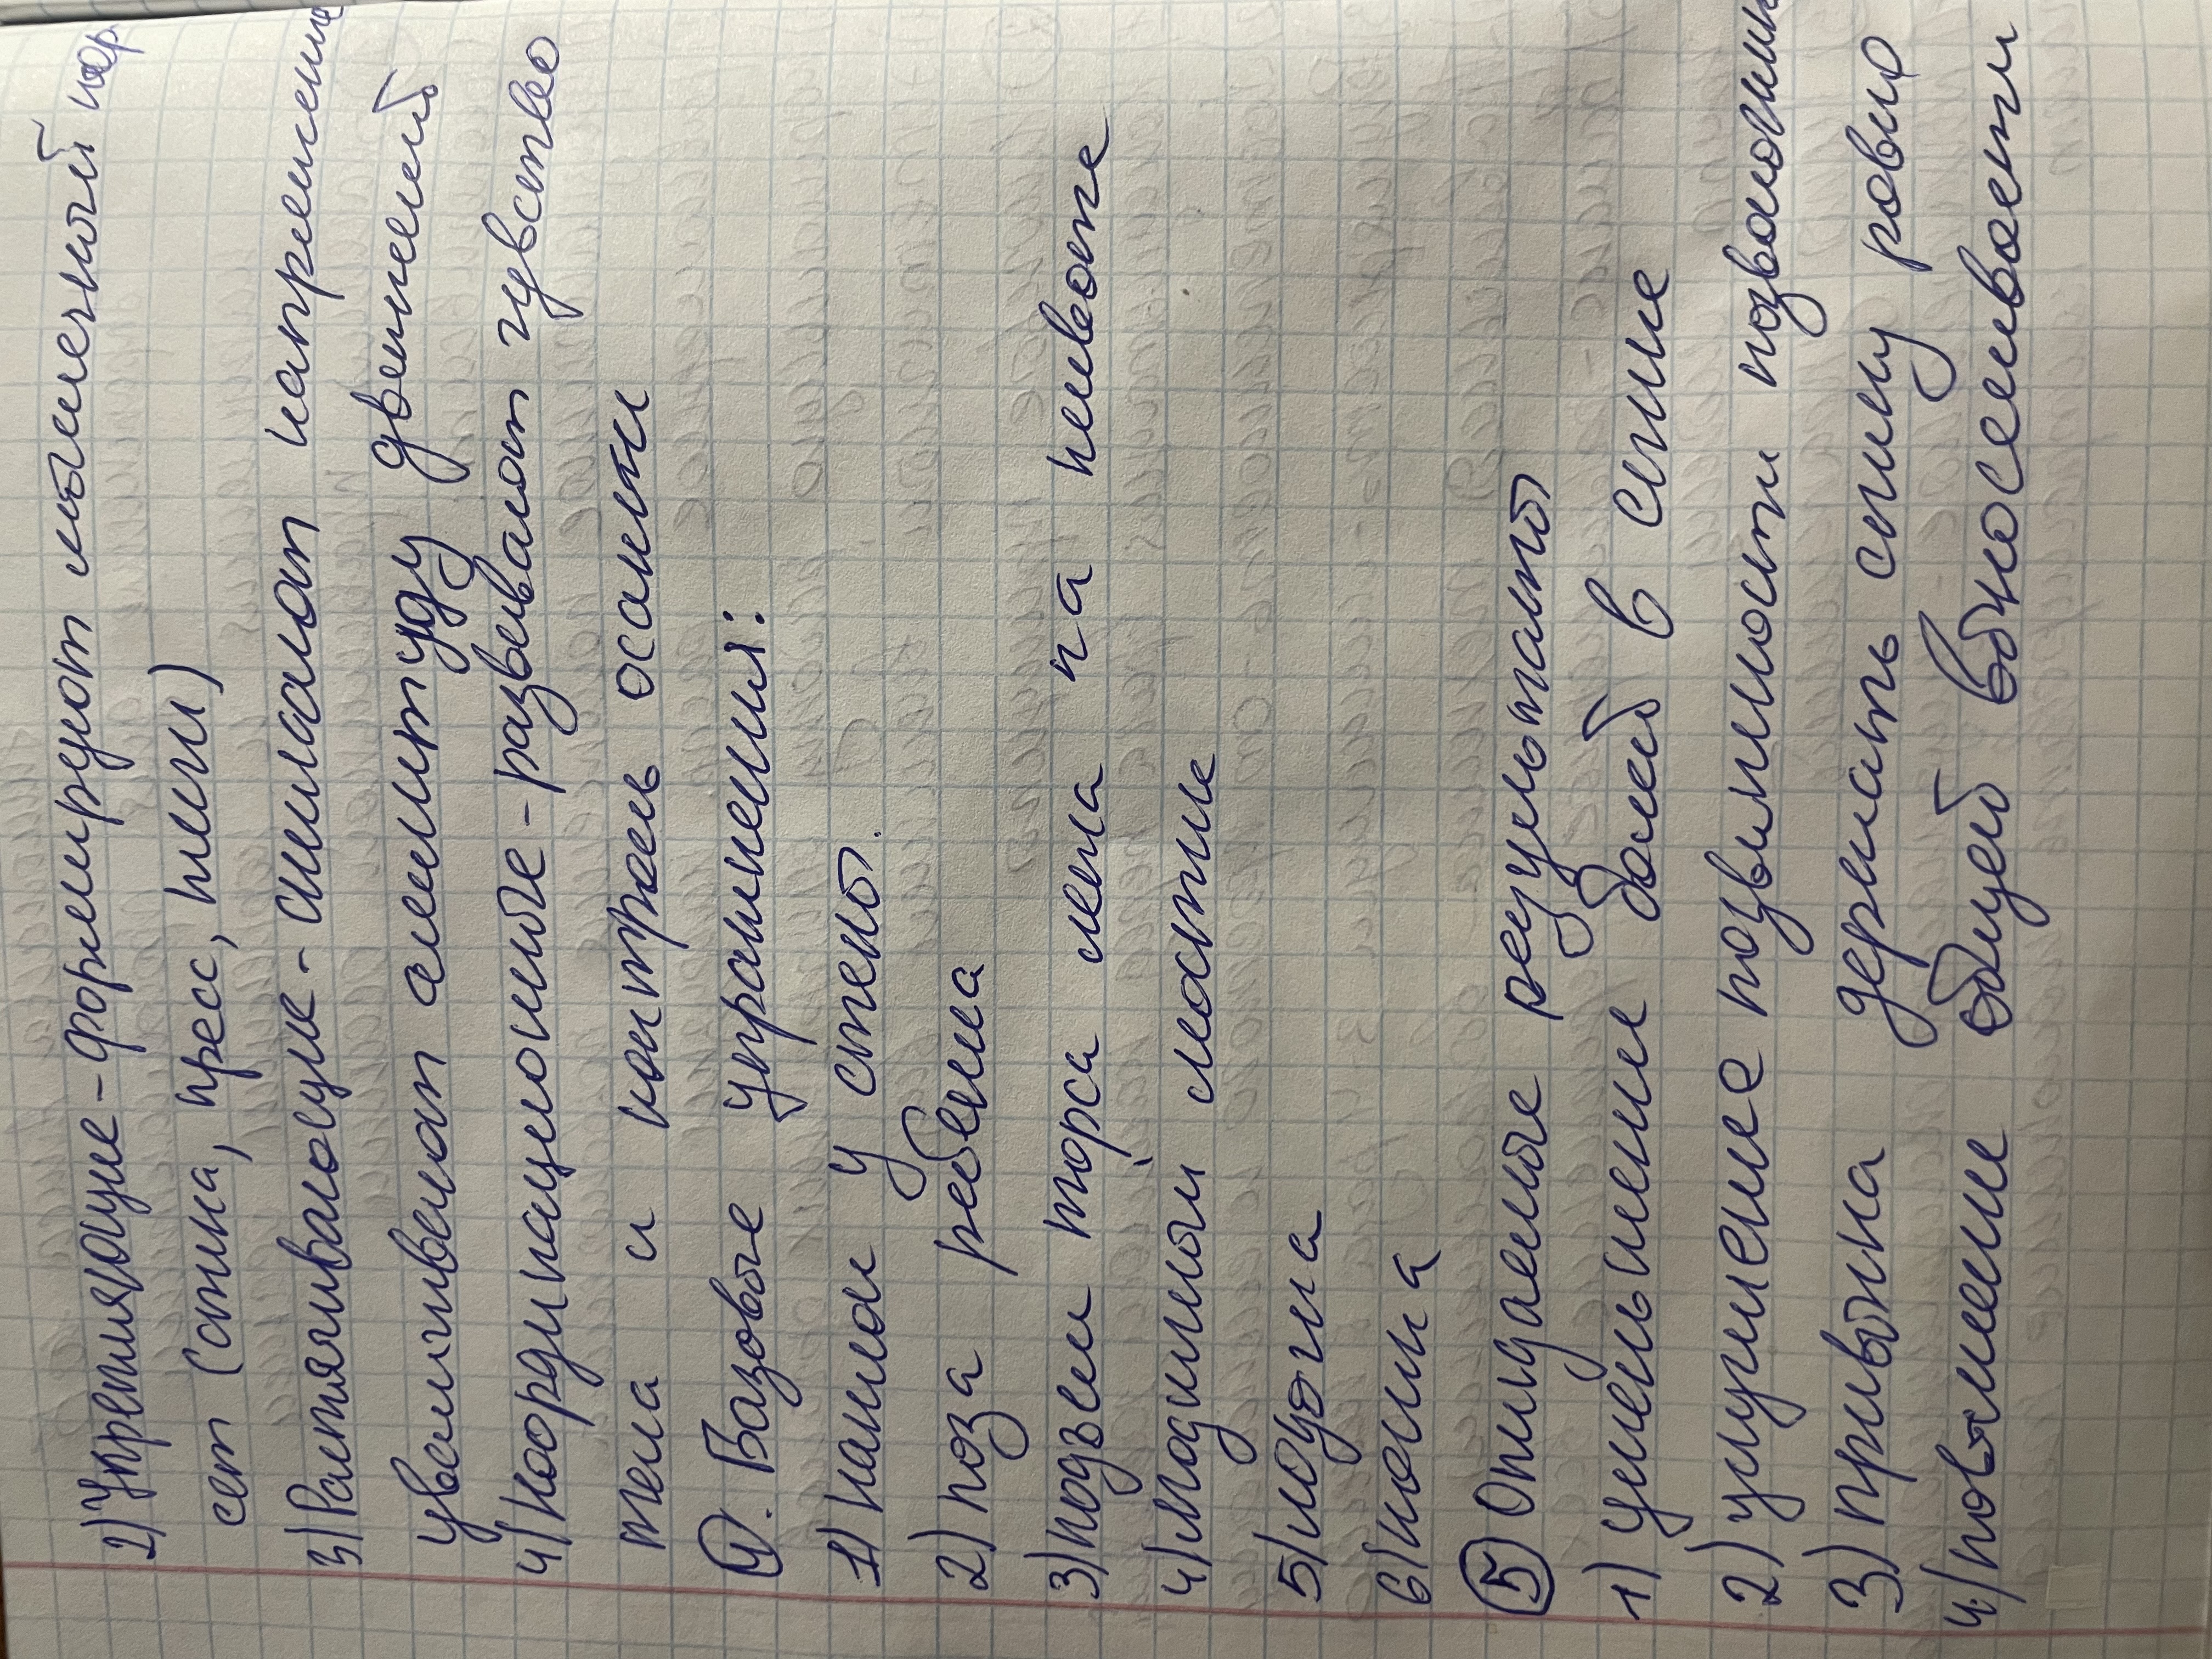 2) Укрепляющие - формируют мышечный кор
сет (спина, пресс, плечи)
3) Растягивающие - снимают напряжение
увеличивают амплитуду движений
4) Координационные - развивают чувство
тела и контроль осанки
4. Базовые упражнения:
1) наклон у стены.
2) поза ребенка
3) подъем торса лежа на животе
4) ягодичный мостик
5) лодочка
6) кошка
5) Ожидаемые результаты
1) уменьшение болей в спине
2) улучшение подвижности позвоночника
3) привычка держать спину ровно
4) повышение общей выносливости